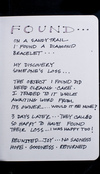 FOUND...
IN A SANDY TRAIL
I FOUND A DIAMOND
BRACELET...
MY DISCOVERY
SOMEONE'S LOSS...
THE OBJECT I FOUND DID
NEED CLEANING CARE
I TENDED TO IT WHILE
AWAITING WORD FROM
ITS OWNER... WOULD IT BE MINE?
3 DAYS LATER. THEY CALLED
SO HAPPY I HAVE FOUND
THEIR LOSS... I WAS HAPPY TOO!
REUNITED JOY NO SADNESS
HOPE GOODNESS RETURNED